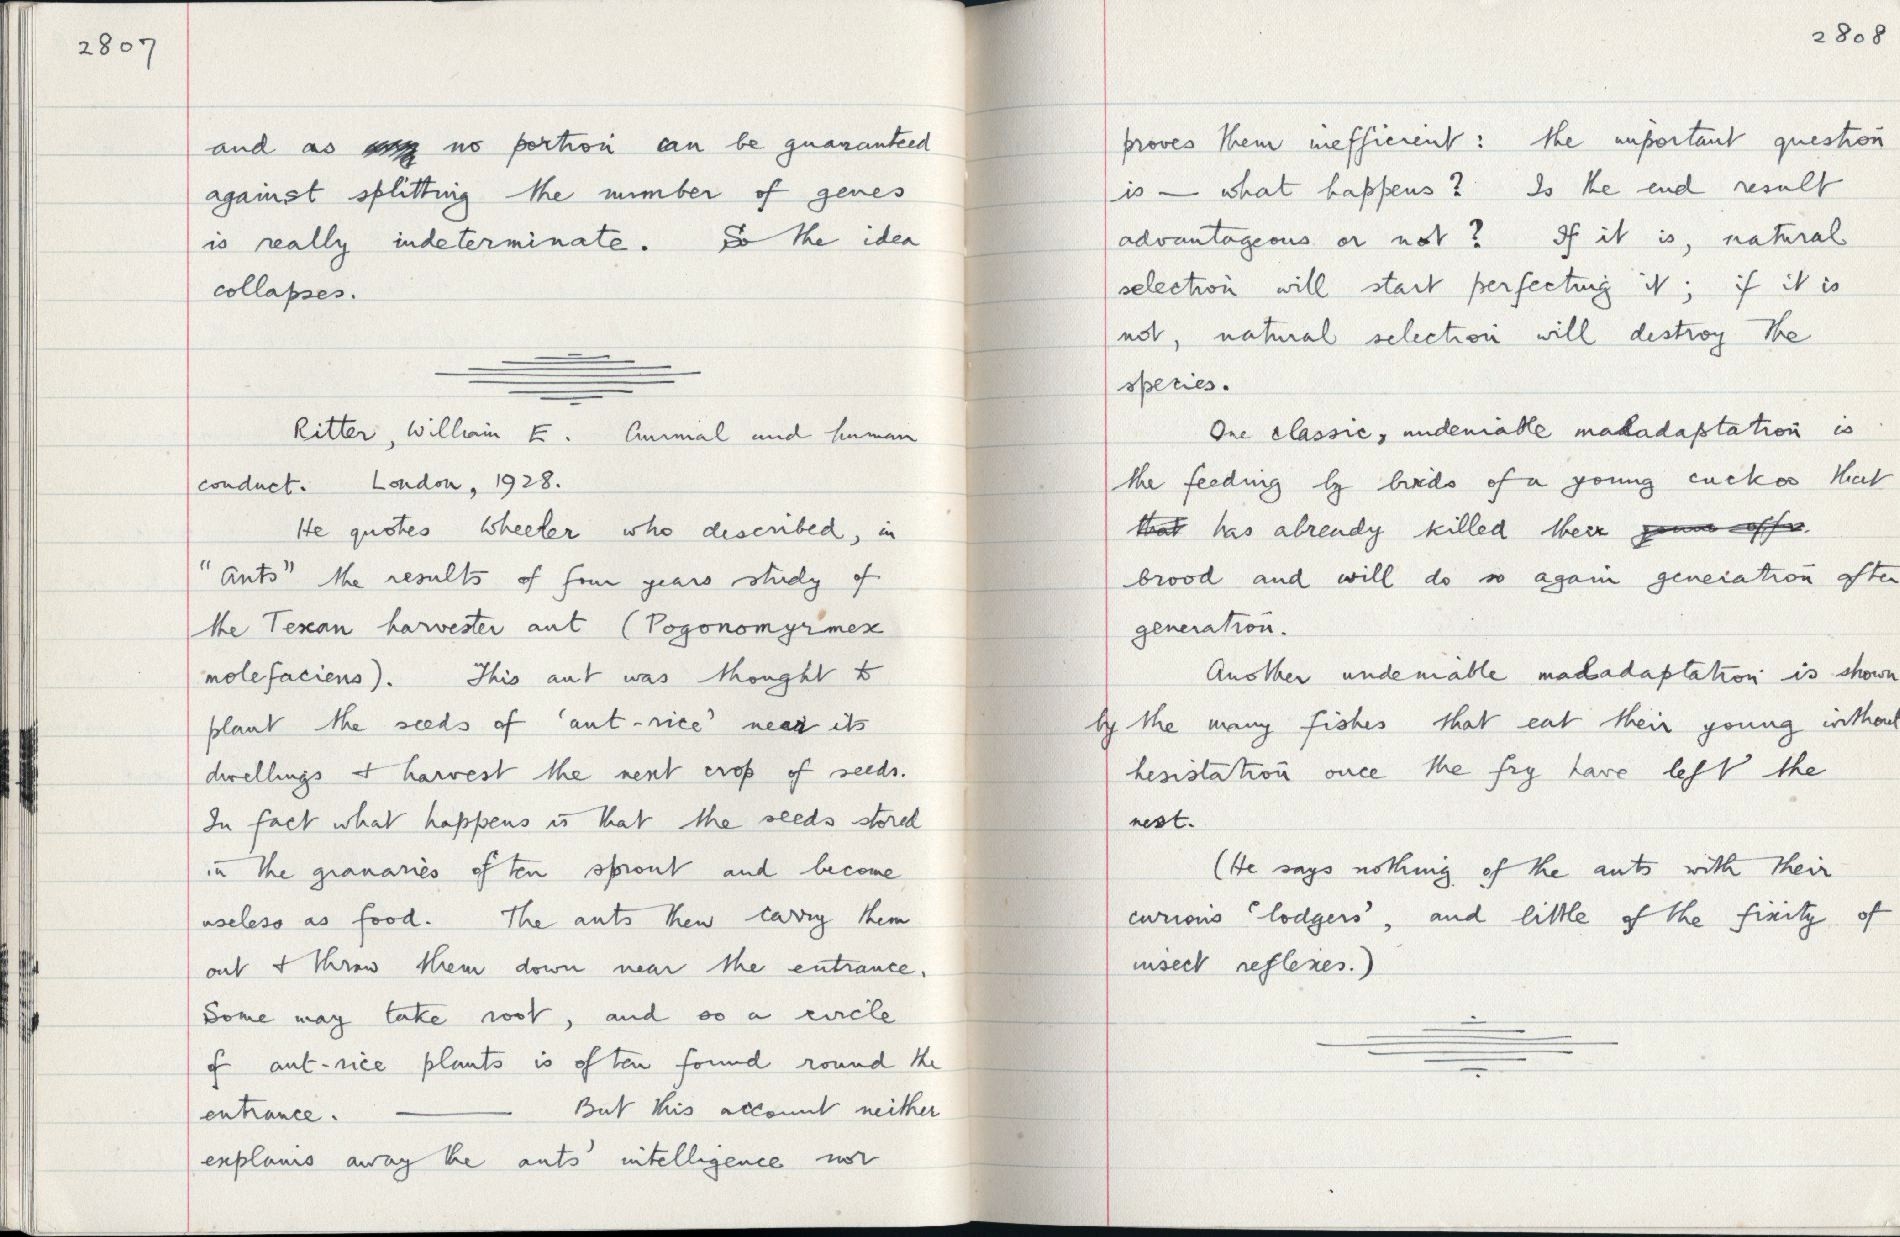 2807
and as no portion can be guaranteed
against splitting the number of genes
is really indeterminate. So the idea
collapses.
Ritter, William E. Animal and human
conduct. London, 1928.
He quotes Wheeler who described, in
"Ants" the results of four years study of
the Texan harvester ant (Pogonomyrmex
molefaciens). This ant was thought to
plant the seeds of 'ant-rice' near its
dwellings & harvest the next crop of seeds.
In fact what happens is that the seeds stored
in the granaries often sprout and become
useless as food. The ants then carry them
out & throw them down near the entrance.
Some may take root, and so a circle
of ant-rice plants is often found round the
entrance. —— But this account neither
explains away the ants' intelligence nor
2808
proves them inefficient: the important question
is — what happens? Is the end result
advantageous or not? If it is, natural
selection will start perfecting it; if it is
not, natural selection will destroy the
species.
One classic, undeniable maladaptation is
the feeding by birds of a young cuckoo that
that has already killed their young offs.
brood and will do so again generation after
generation.
Another undeniable maladaptation is shown
by the many fishes that eat their young without
hesistation once the fry have left the
nest.
(He says nothing of the ants with their
curious 'lodgers', and little of the fixity of
insect reflexes.)